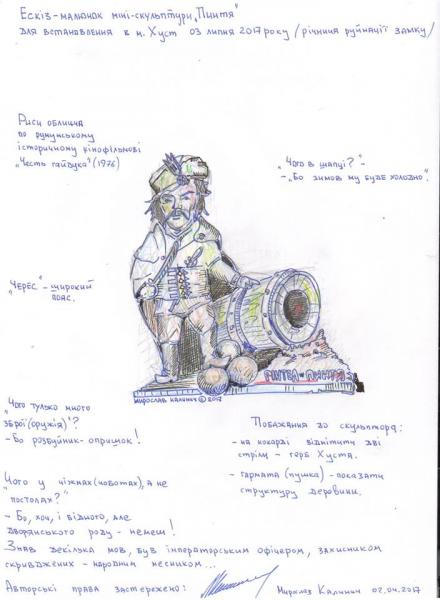 Ескіз-малюнок міні-скульптури „Пинтя"
для встановлення в м. Хуст 03 липня 2017 року /річниця руйнації замку/
Риси обличчя
по румунському
історичному кінофільмові
„Честь гайдука" (1976)
„Чого в шапці?" -
- „Бо зимов му буде холодно".
„Черес" - широкий
пояс.
PINTEA - ПИНТЯ
Мирослав Калинич © 2017
„Чого тулько много
зброї (оружія)"?
- Бо розбуйник-опришок!
Побажання до скульптора:
- на кокарді відмітити дві
стріли - герб Хуста.
- гармата (пушка) - показати
структуру деревини.
„Чого у чіжмах (чоботах), а не
постолах?"
- Бо, хоч, і бідного, але
дворянського роду - немеш!
Знав декілька мов, був імператорським офіцером, захисником
скривджених - народним месником...
Авторські права застережено:
Мирослав Калинич 02.04.2017